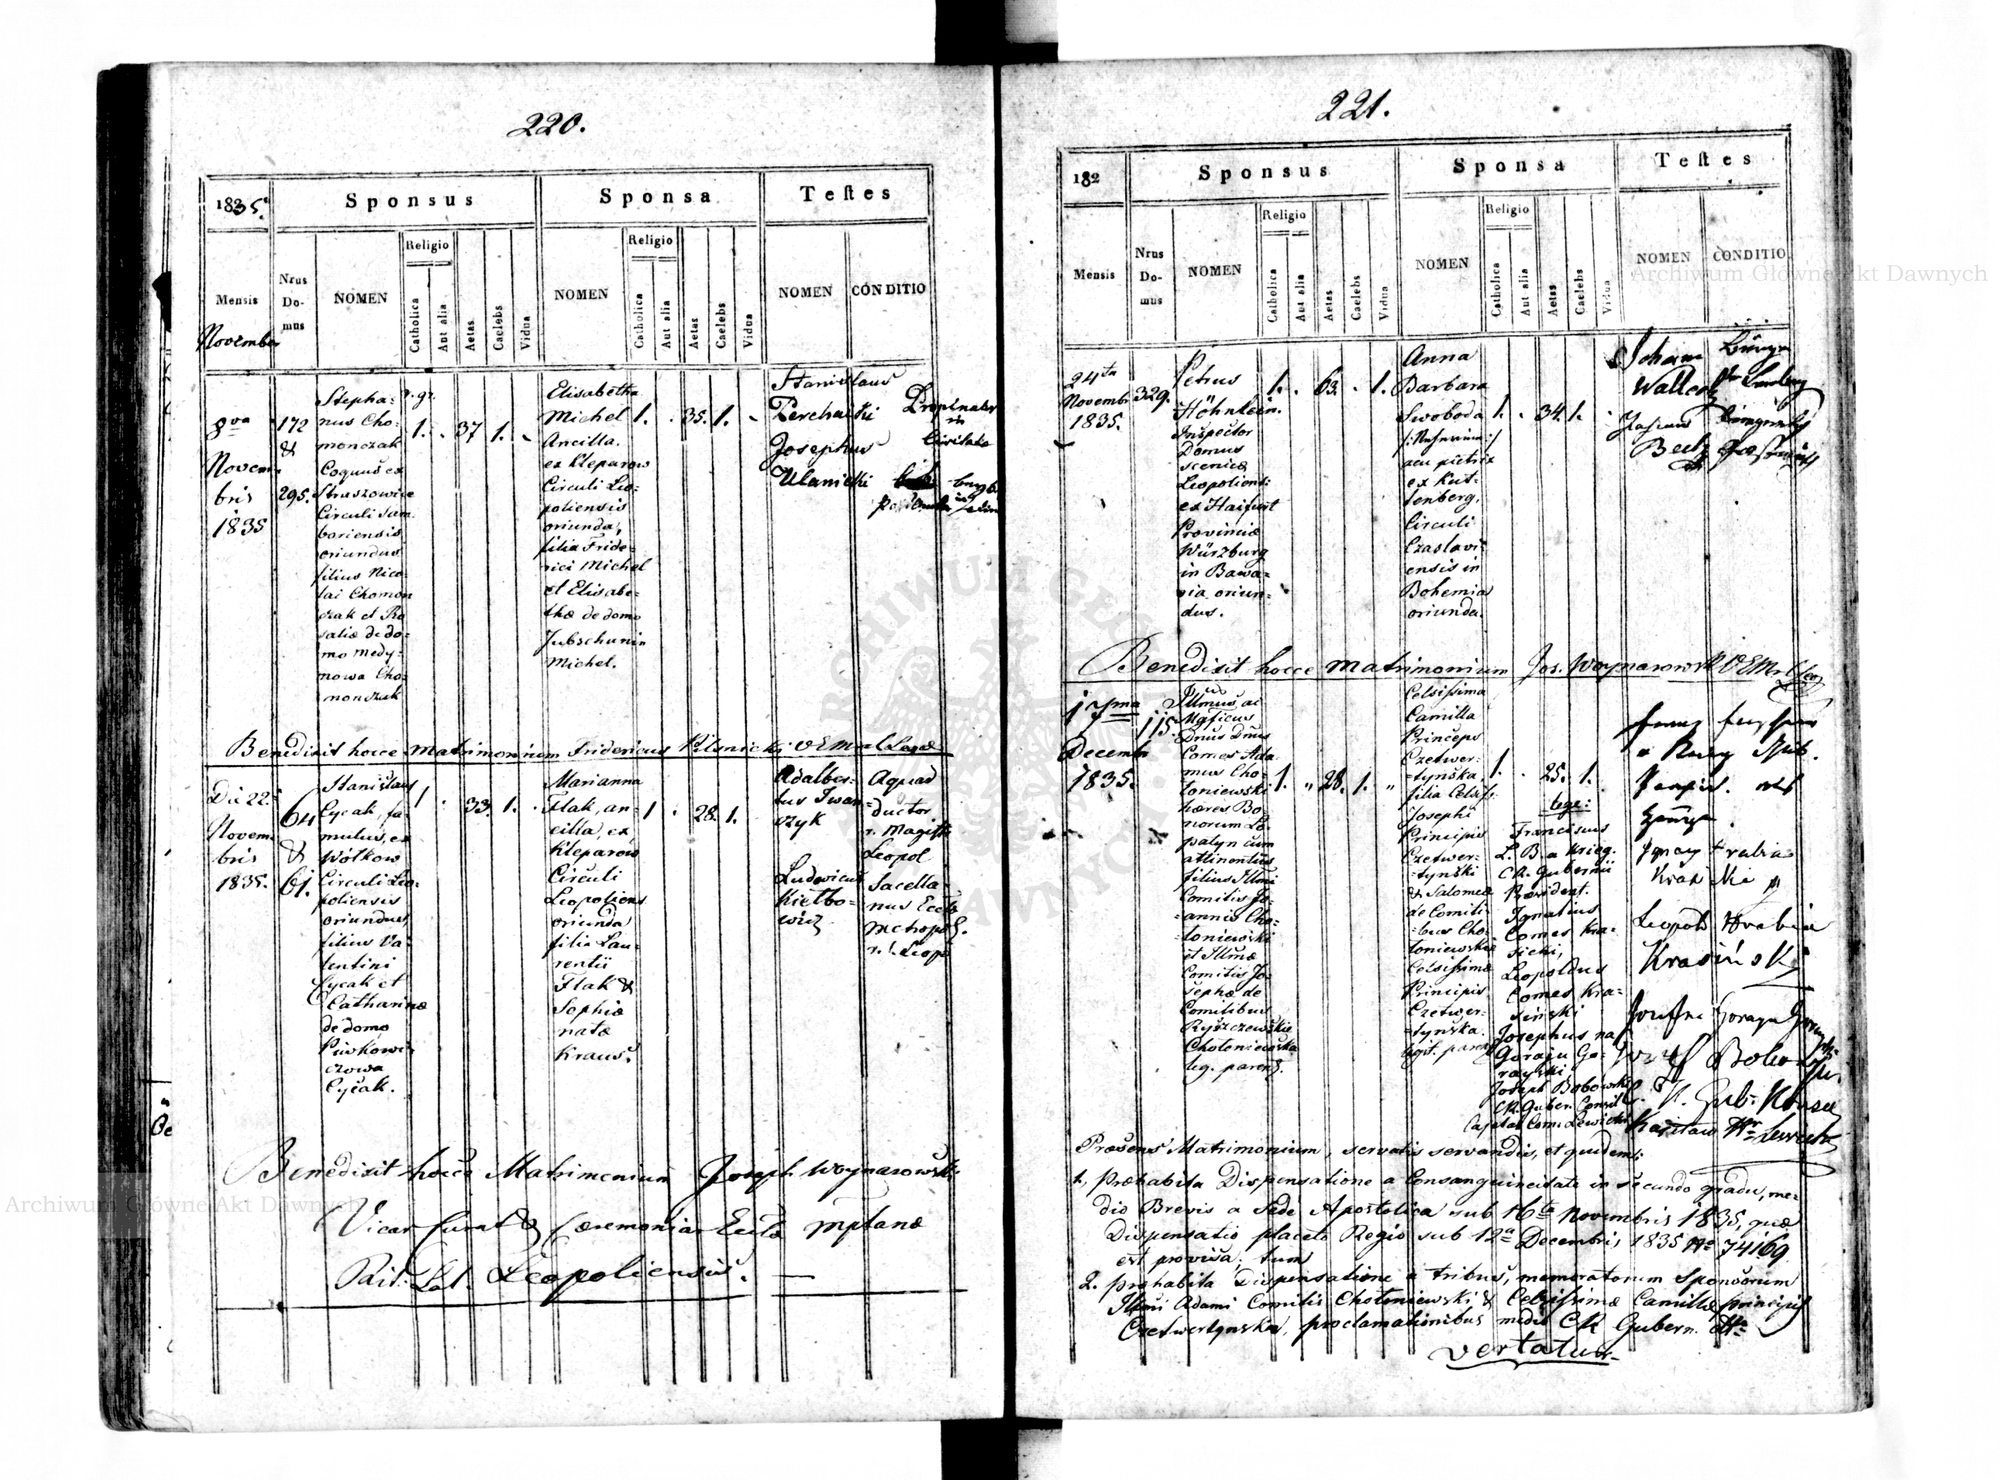 220.
1835.
Sponsus
Sponsa
Testes
Mensis
Nrus Domus
NOMEN
Religio
Catholica
Aut alia
Aetas
Caelebs
Vidua
NOMEN
Religio
Catholica
Aut alia
Aetas
Caelebs
Vidua
NOMEN
CONDITIO
November
8va
Novem-
bris
1835
172
&
295.
Stepha-
nus Cho-
monczak
Coquus ex
Straszowice
Circuli Sam
boriensis
oriundus
filius Nico-
lai Chomon
czak et Ro
saliæ de do-
mo Medy-
nowa Cho-
monczak
1.
37
1.
Elisabetha
Michel
Ancilla.
ex Kleparow
Circuli Leo-
poliensis
oriunda,
filia Fride-
rici Michel
et Elisabe-
thæ de domo
Jubschunin
Michel.
1.
35.
1.
Stanislaus
Josephus
Ulanicki
Propinator
in
Civitate
Benedixit hocce matrimonium Fridericus Pilsnicki
Die 22.
Novem-
bris
1835.
64
&
61.
Stanislaus
Cycak, fa-
mulus, ex
Wolkow
Circuli Leo-
poliensis
oriundus,
filius Va-
lentini
Cycak et
Catharinæ
de domo
czowa
Cycak.
1
33.
1.
Marianna
Flak, an-
cilla, ex
Kleparow
Circuli
Leopoliens
oriunda
filia Lau-
rentii
Flak &
Sophiæ
natæ
Kraus.
1
28.
1.
Adalber-
tus Iwan-
czyk
Aquad
ductor
r. Magistr
Leopol
Ludovicus
Kiełbo-
wicz
Sacella-
nus Eccl
Metropol.
r. l. Leopo
Benedixit hocce Matrimonium Joseph Woynarowski
Vicar Curat & Ceremoniar Ecclæ Mptanæ
Rit. Lat. Leopoliensis.
221.
182
Sponsus
Sponsa
Testes
Mensis
Nrus Domus
NOMEN
Religio
Catholica
Aut alia
Aetas
Caelebs
Vidua
NOMEN
Religio
Catholica
Aut alia
Aetas
Caelebs
Vidua
NOMEN
CONDITIO
24ta
Novembr
1835.
329.
Petrus
Höhnlein.
Inspector
Domus
scenicæ
Leopoliensi
ex Haifurt
Provinciæ
Würzburg
in Bawa-
ria oriun-
dus.
1.
63.
1.
Anna
Barbara
Swoboda
acu pictrix
ex Kut-
tenberg,
Circuli
Czaslavi-
ensis in
Bohemia
oriunda.
1.
34.
1.
Johann
Benedixit hocce Matrimonium Jos. Woynarowski
17ma
Decembr
1835.
115.
Illmus ac
Mgficus
Dnus Dnus
Comes Ada-
mus Cho-
toniewski
hæres Bo-
norum Lo-
palyn cum
attinentiis
filius Illmi
Comitis Jo-
annis Cho-
toniewski
et Illmæ
Comitis Jo-
sephæ de
Comitibus
Ryszczewskie
Choteniewska
leg. parent.
1.
28.
1.
Celsissima
Camilla
Princeps
Czetwer-
tyńska,
filia Celsiss
Josephi
Principis
Czetwer-
tyński
& Salomeæ
de Comiti-
bus Cho-
toniewskie
Celsissimæ
Principis
Czetwer-
tyńska.
legit. parent
1.
25.
1.
lege:
Franciscus
L. B. a Krieg.
CR. Gubernii
Præsident.
Ignatius
Comes Kra-
sicki,
Leopoldus
Comes Kra-
siński
Josephus na
Goraju Go-
rayski,
Joseph Bobowski
CR. Guber. Consil
Cajetan Com. Lewicki
Ignacy Hrabia
Krasicki
Leopold Hrabia
Krasiński
Kajetan Hr. Lewicki
Præsens Matrimonium, servatis servandis, et quidem:
1, Præhabita Dispensatione a Consanguineitate in secundo gradu, me-
dio Brevis a Sede Apostolica sub 16ta Novembris 1835, quæ
Dispensatio placeto Regio sub 12a Decembris 1835 No 74169
est provisa; tum
2. Præhabita Dispensatione a tribus, memoratorum Sponsorum
Illmi Adami Comitis Chotoniewski & Celsissimæ Camillæ principis
Czetwertynska, proclamationibus medio CR Gubern.
vertatur
Archiwum Główne Akt Dawnych
Archiwum Główne Akt Dawnych
ARCHIWUM GŁÓWNE AKT DAWNYCH